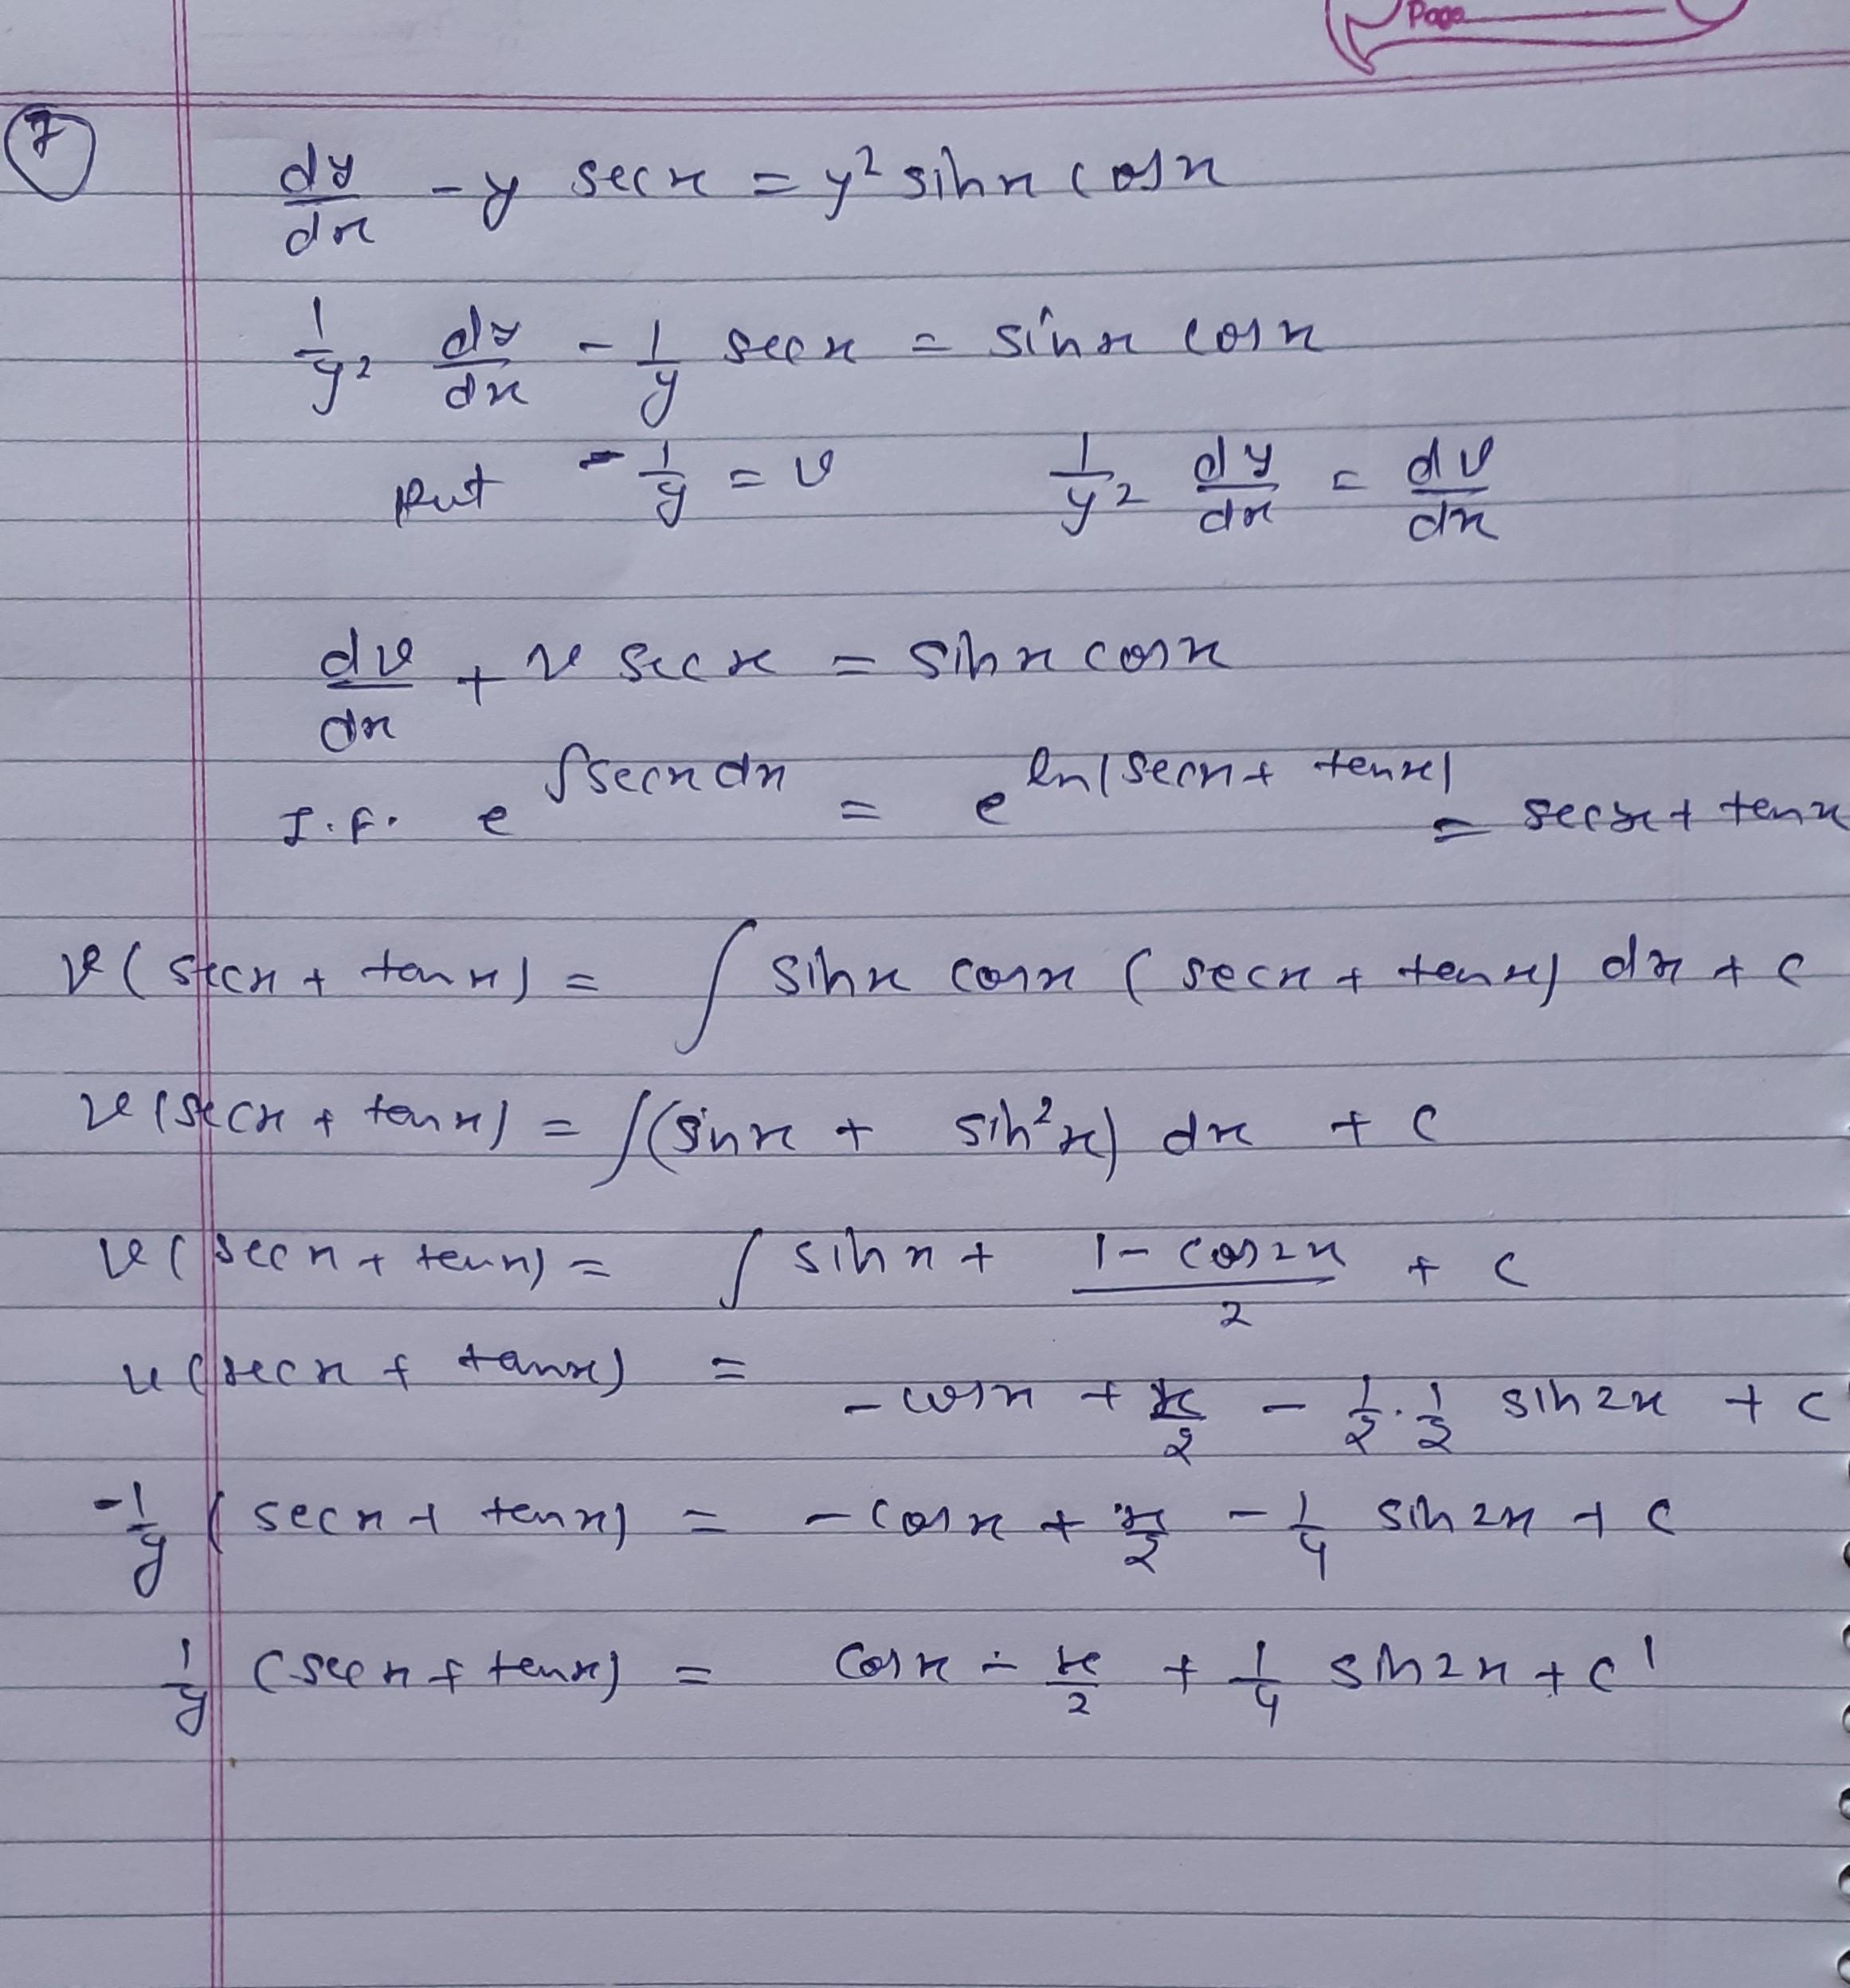 Page
7
dy/dx - y sec x = y² sin x cos x
1/y² dy/dx - 1/y sec x = sin x cos x
Put -1/y = v 1/y² dy/dx = dv/dx
dv/dx + v sec x = sin x cos x
I.F. e^∫sec x dx = e^ln|sec x + tan x| = sec x + tan x
v(sec x + tan x) = ∫ sin x cos x (sec x + tan x) dx + c
v(sec x + tan x) = ∫(sin x + sin² x) dx + c
v(sec x + tan x) = ∫ sin x + (1 - cos 2x)/2 + c
v(sec x + tan x) = -cos x + x/2 - 1/2 · 1/2 sin 2x + c
-1/y (sec x + tan x) = -cos x + x/2 - 1/4 sin 2x + c
1/y (sec x + tan x) = cos x - x/2 + 1/4 sin 2x + c'